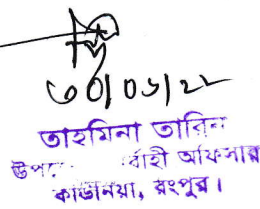 ৩০/০৬/২২
তাহমিনা তারিন
র্বাহী অফিসার
কাউনিয়া, রংপুর।